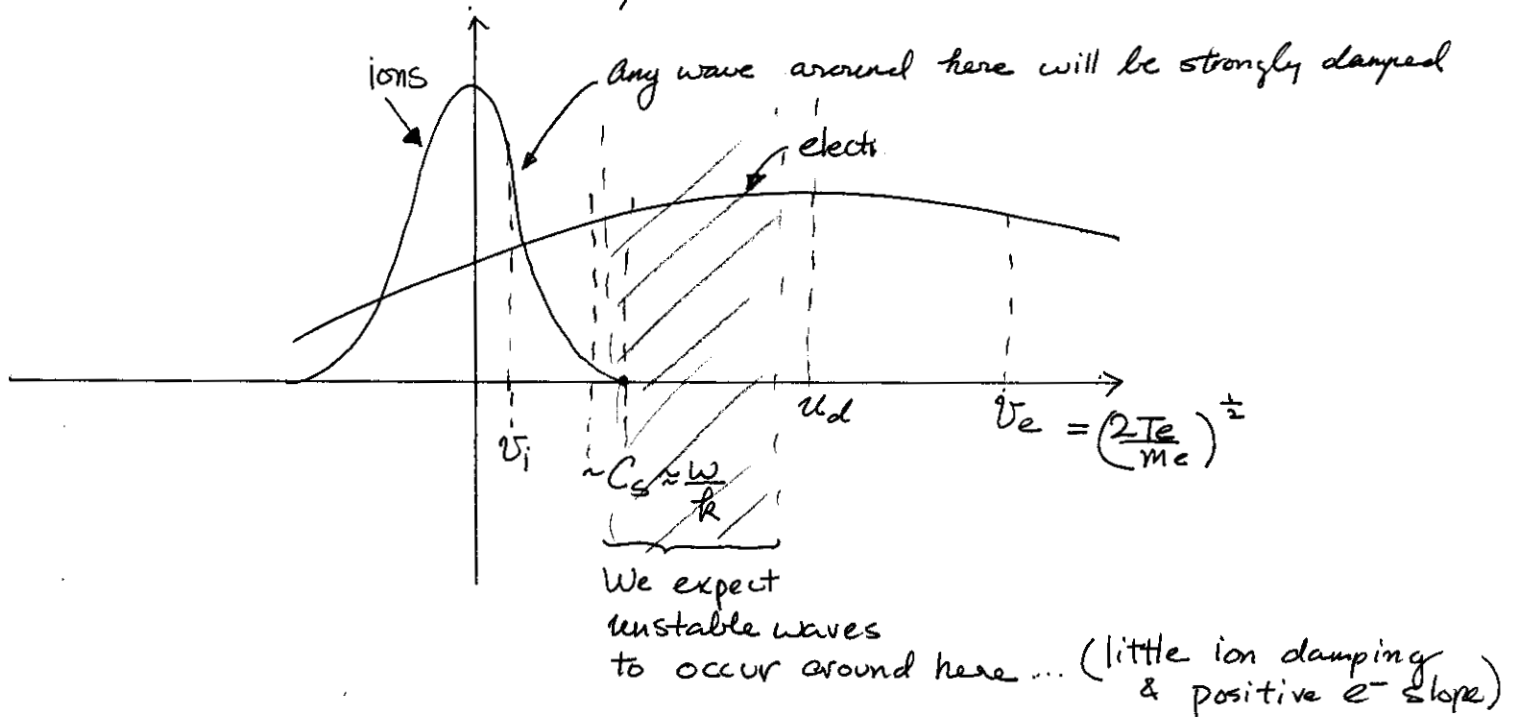 ions
Any wave around here will be strongly damped
elect
u_d
v_e = (2Te/me)^{1/2}
v_i
~C_s ≈ ω/k
We expect
unstable waves
to occur around here... (little ion damping
& positive e⁻ slope)